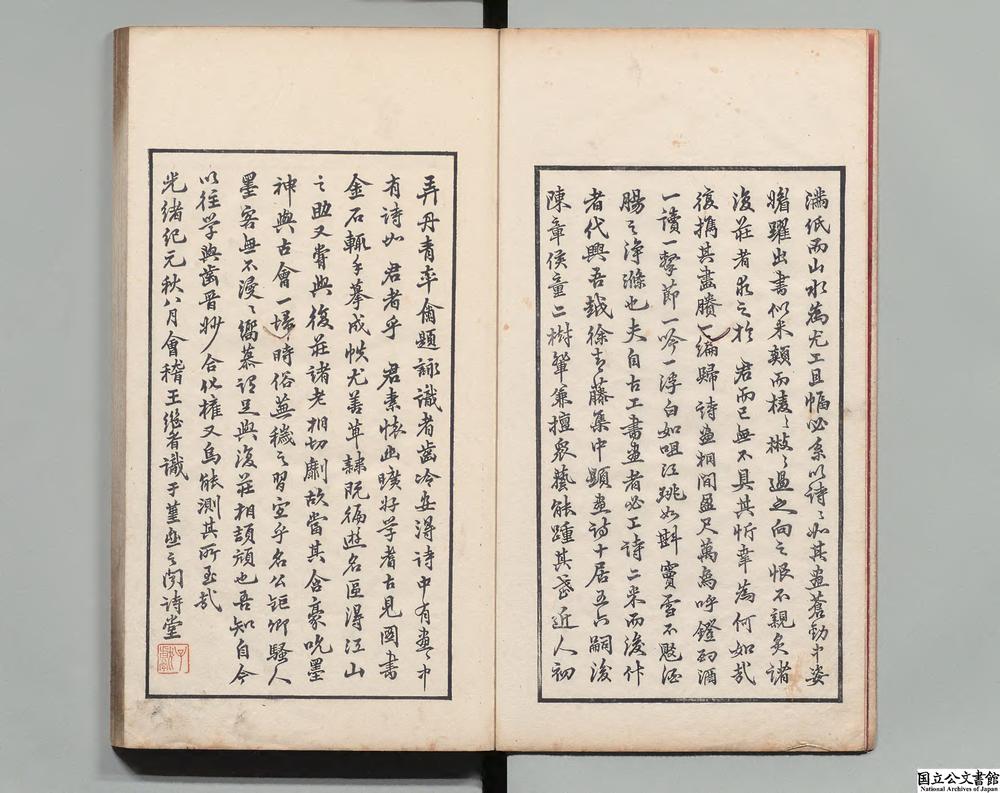 滿紙而山水為尤工且幅必系以詩〻如其畫蒼勁中姿
媚躍出書似米顛而稜〻檄〻過之向之恨不親炙諸
復莊者求之於 君而已無不具其忻幸為何如哉
復攜其畫賸一編歸詩畫相間盈尺萬為呼鐙酌酒
一讀一擊節一吟一浮白如咀江跳如斟竇雪不覺酒
腸之淨滌也夫自古工書畫者必工詩二米而後作
者代興吾越徐青藤集中題畫詩十居五六嗣後
陳章侯童二樹輩兼擅衆藝能踵其武近人初
弄丹青率爾題詠識者齒冷安得詩中有畫〻中
有詩如 君者乎 君素懷幽曠好學耆古見圖書
金石輒手摹成帙尤善草隸既徧遊名區得江山
之助又嘗與復莊諸老相切劘故當其含豪吮墨
神與古會一埽時俗蕪穢之習宜乎名公鉅卿騷人
墨客無不浸〻嚮慕謂足與復莊相頡頏也吾知自今
以往學與齒晋妙合化權又烏能測其所至哉
光緒紀元秋八月會稽王繼香識于菫廬之問詩堂
国立公文書館
National Archives of Japan